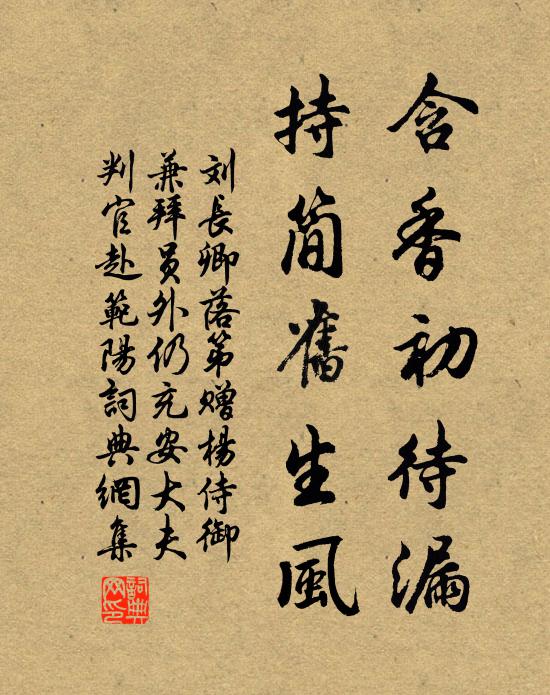 含香初待漏
持简舊生風
刘長卿落第赠楊侍御
兼拜員外仍充安大夫
判官赴範陽詞典網集
詞典
网印